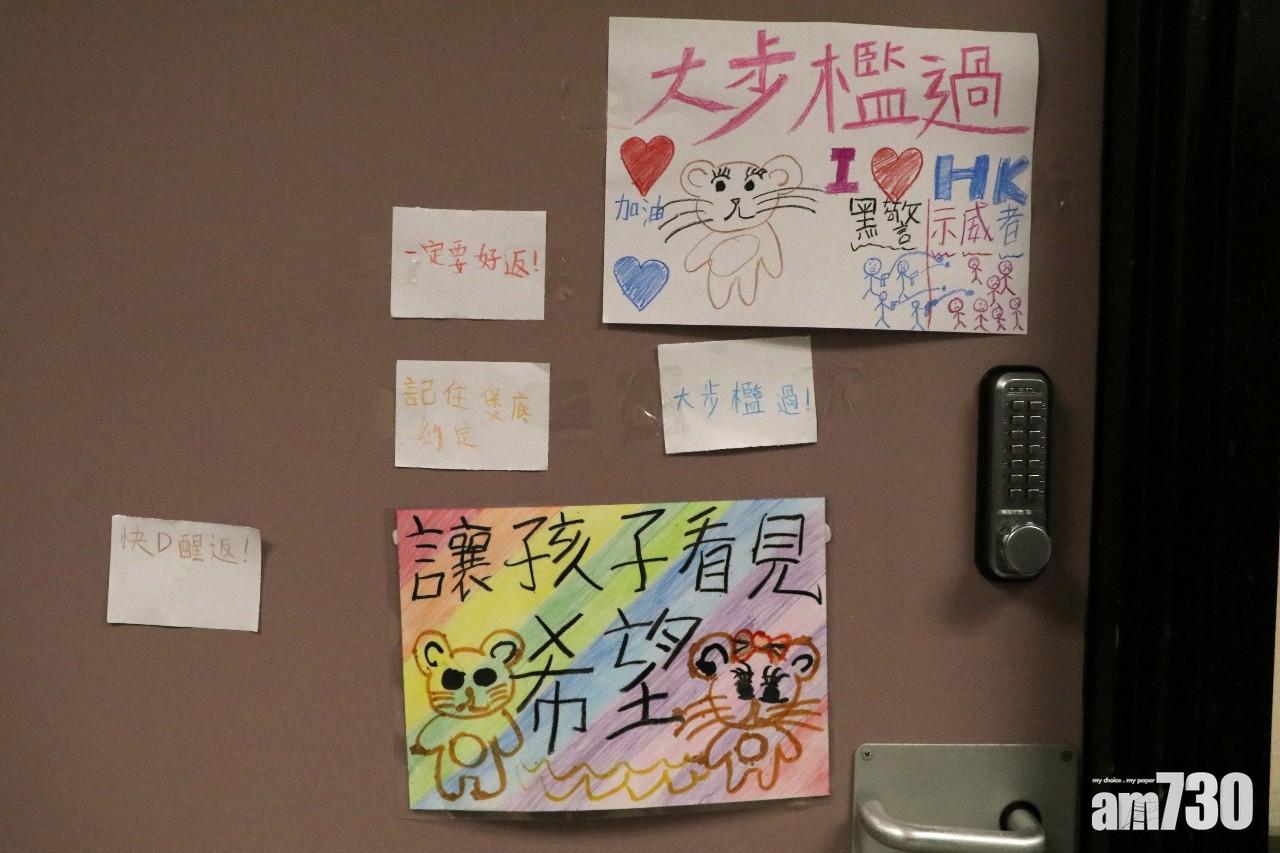 大步檻過
I ❤ HK
加油
黑警 示威者
一定要好返!
記住煲底
約定
大步檻過!
快D醒返!
讓孩子看見
希望
DIGITAL
my choice . my paper
am730